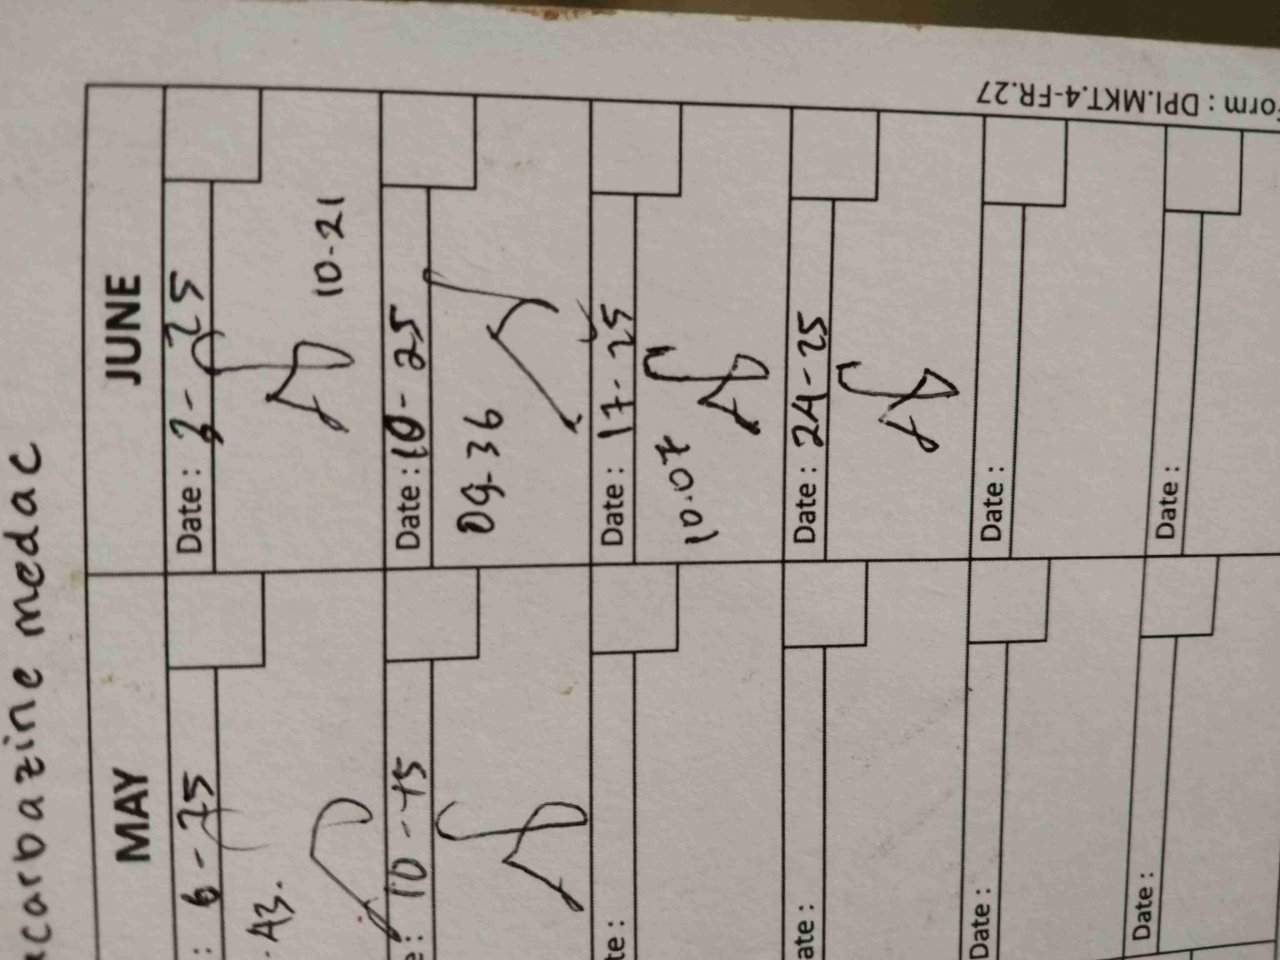 acarbazine medac
MAY
: 6-25
. A3.
e: 10-15
te :
ate :
Date :
Date :
JUNE
Date : 3-25
10-21
Date : 10-25
09-36
Date : 17-25
10.07
Date : 24-25
Date :
Date :
Form : DPI.MKT.4-FR.27